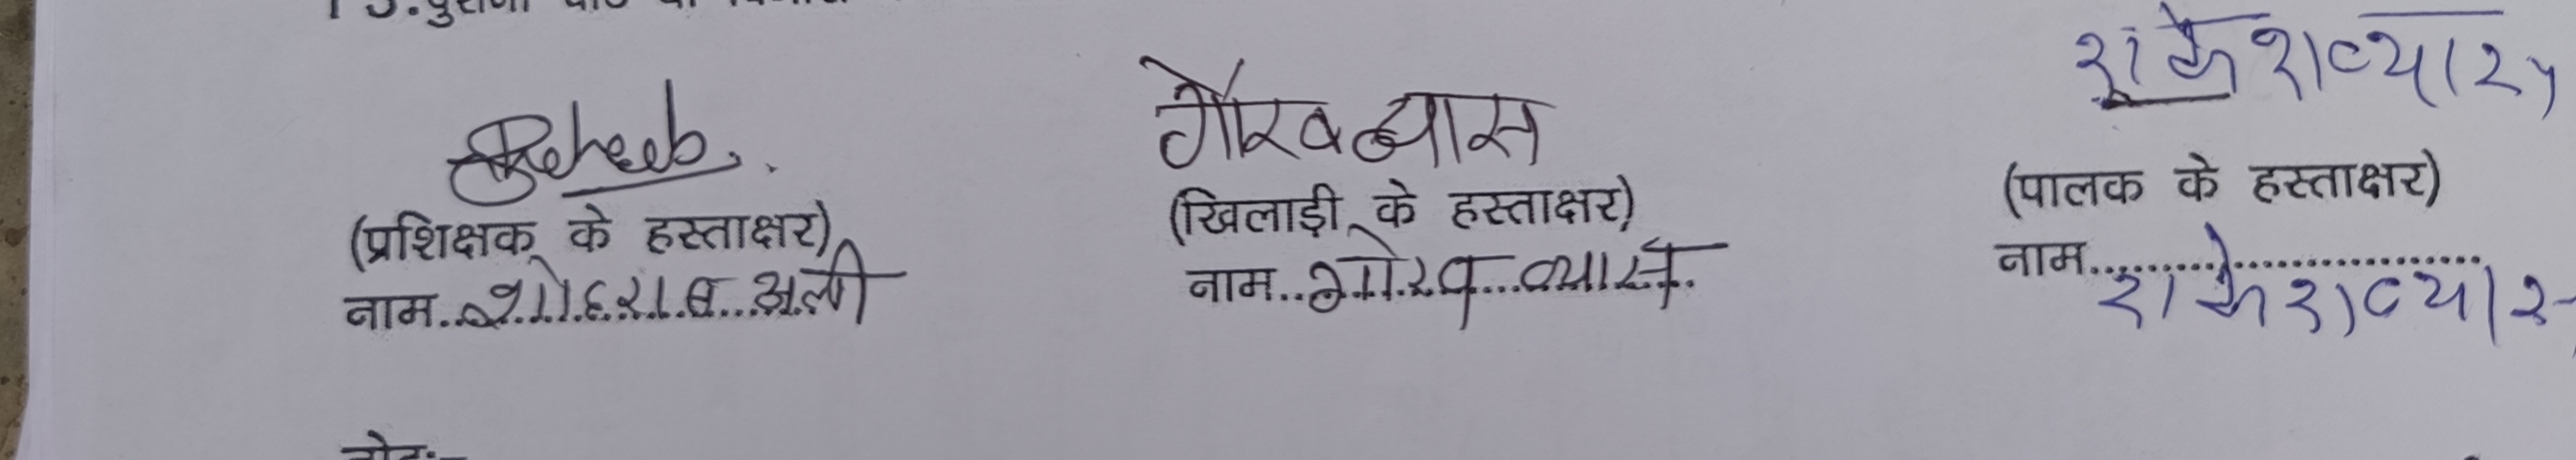 राकेश व्यास
गौरव व्यास
(प्रशिक्षक के हस्ताक्षर) (खिलाड़ी के हस्ताक्षर) (पालक के हस्ताक्षर)
नाम..शोहराब..अली नाम..गौरव...व्यास. नाम....................
राकेश व्यास
नोट:–